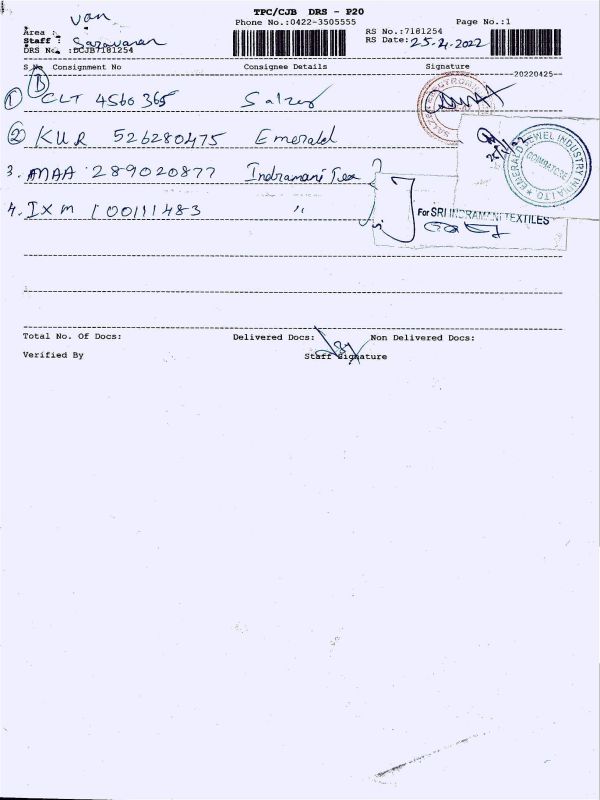 TPC/CJB DRS - P20
Phone No.:0422-3505555
Page No.:1
Area : van
RS No.:7181254
Staff : Saravanan
RS Date: 25-4-2022
DRS No. :DCJB7181254
S.No Consignment No Consignee Details Signature
20220425
D
1 CLT 456036S Salzer
2 KUR 526280475 Emerald
3. MAA 289020877 Indramani Tex
4. IXM 100111483 "
EMERALD JEWEL INDUSTRY INDIA LTD
COIMBATORE
For SRI INDRAMANI TEXTILES
Total No. Of Docs: Delivered Docs: Non Delivered Docs:
Verified By Staff Signature